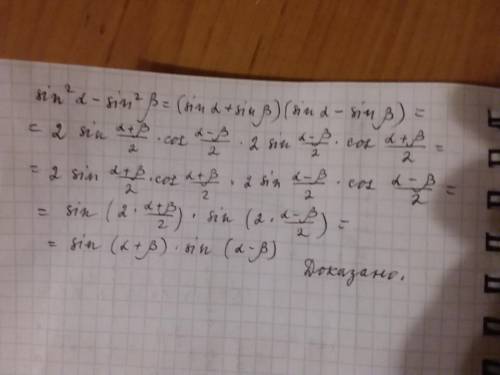 sin²α − sin²β = (sinα + sinβ)(sinα − sinβ) =
= 2 sin (α+β)/2 · cos (α−β)/2 · 2 sin (α−β)/2 · cos (α+β)/2 =
= 2 sin (α+β)/2 · cos (α+β)/2 · 2 sin (α−β)/2 · cos (α−β)/2 =
= sin (2 · (α+β)/2) · sin (2 · (α−β)/2) =
= sin (α+β) · sin (α−β)
Доказано.